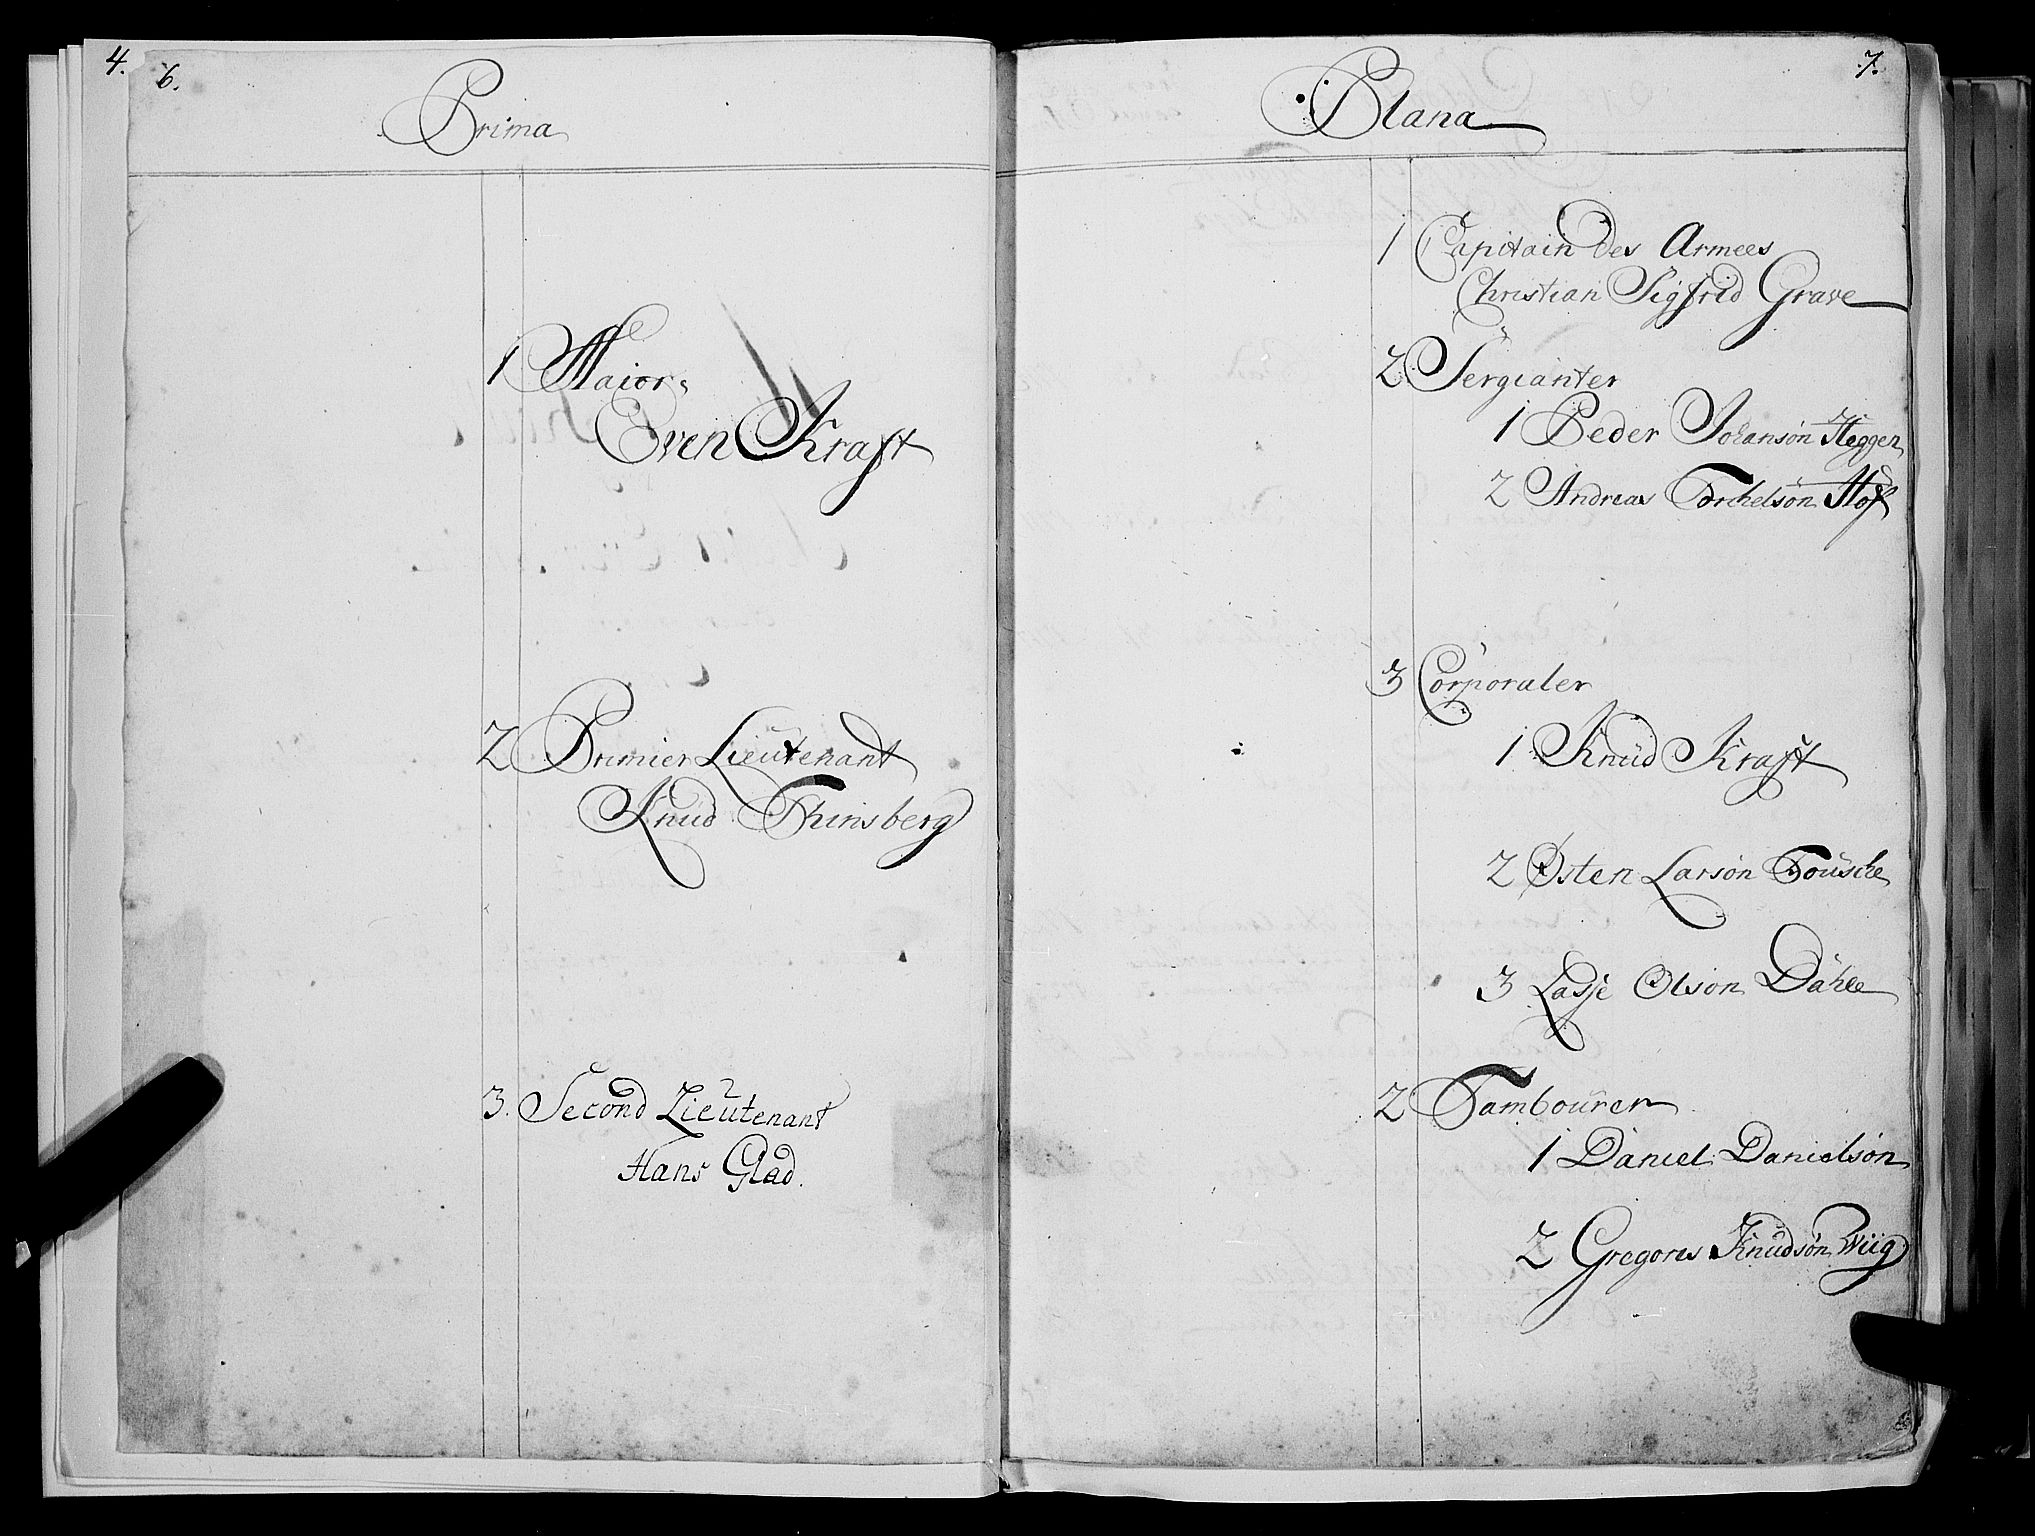 4.
6.
Prima
1 Maior,
Even Kraft
2 Primier Lieutenant
Knud Thinsberg
3. Second Lieutenant
Hans Glad.
7.
Plana
1 Capitain des Armees
Christian Sigfrid Grave
2 Sergianter
1 Peder Johansøn Heggen
2 Andreas Torchelsøn Hof
3 Corporaler
1 Knud Kraft
2 Østen Larsøn Tousche
3 Lasje Olsøn Dahle
2 Tambourer
1 Daniel Danielsøn
2 Gregorus Knudsøn Wiig